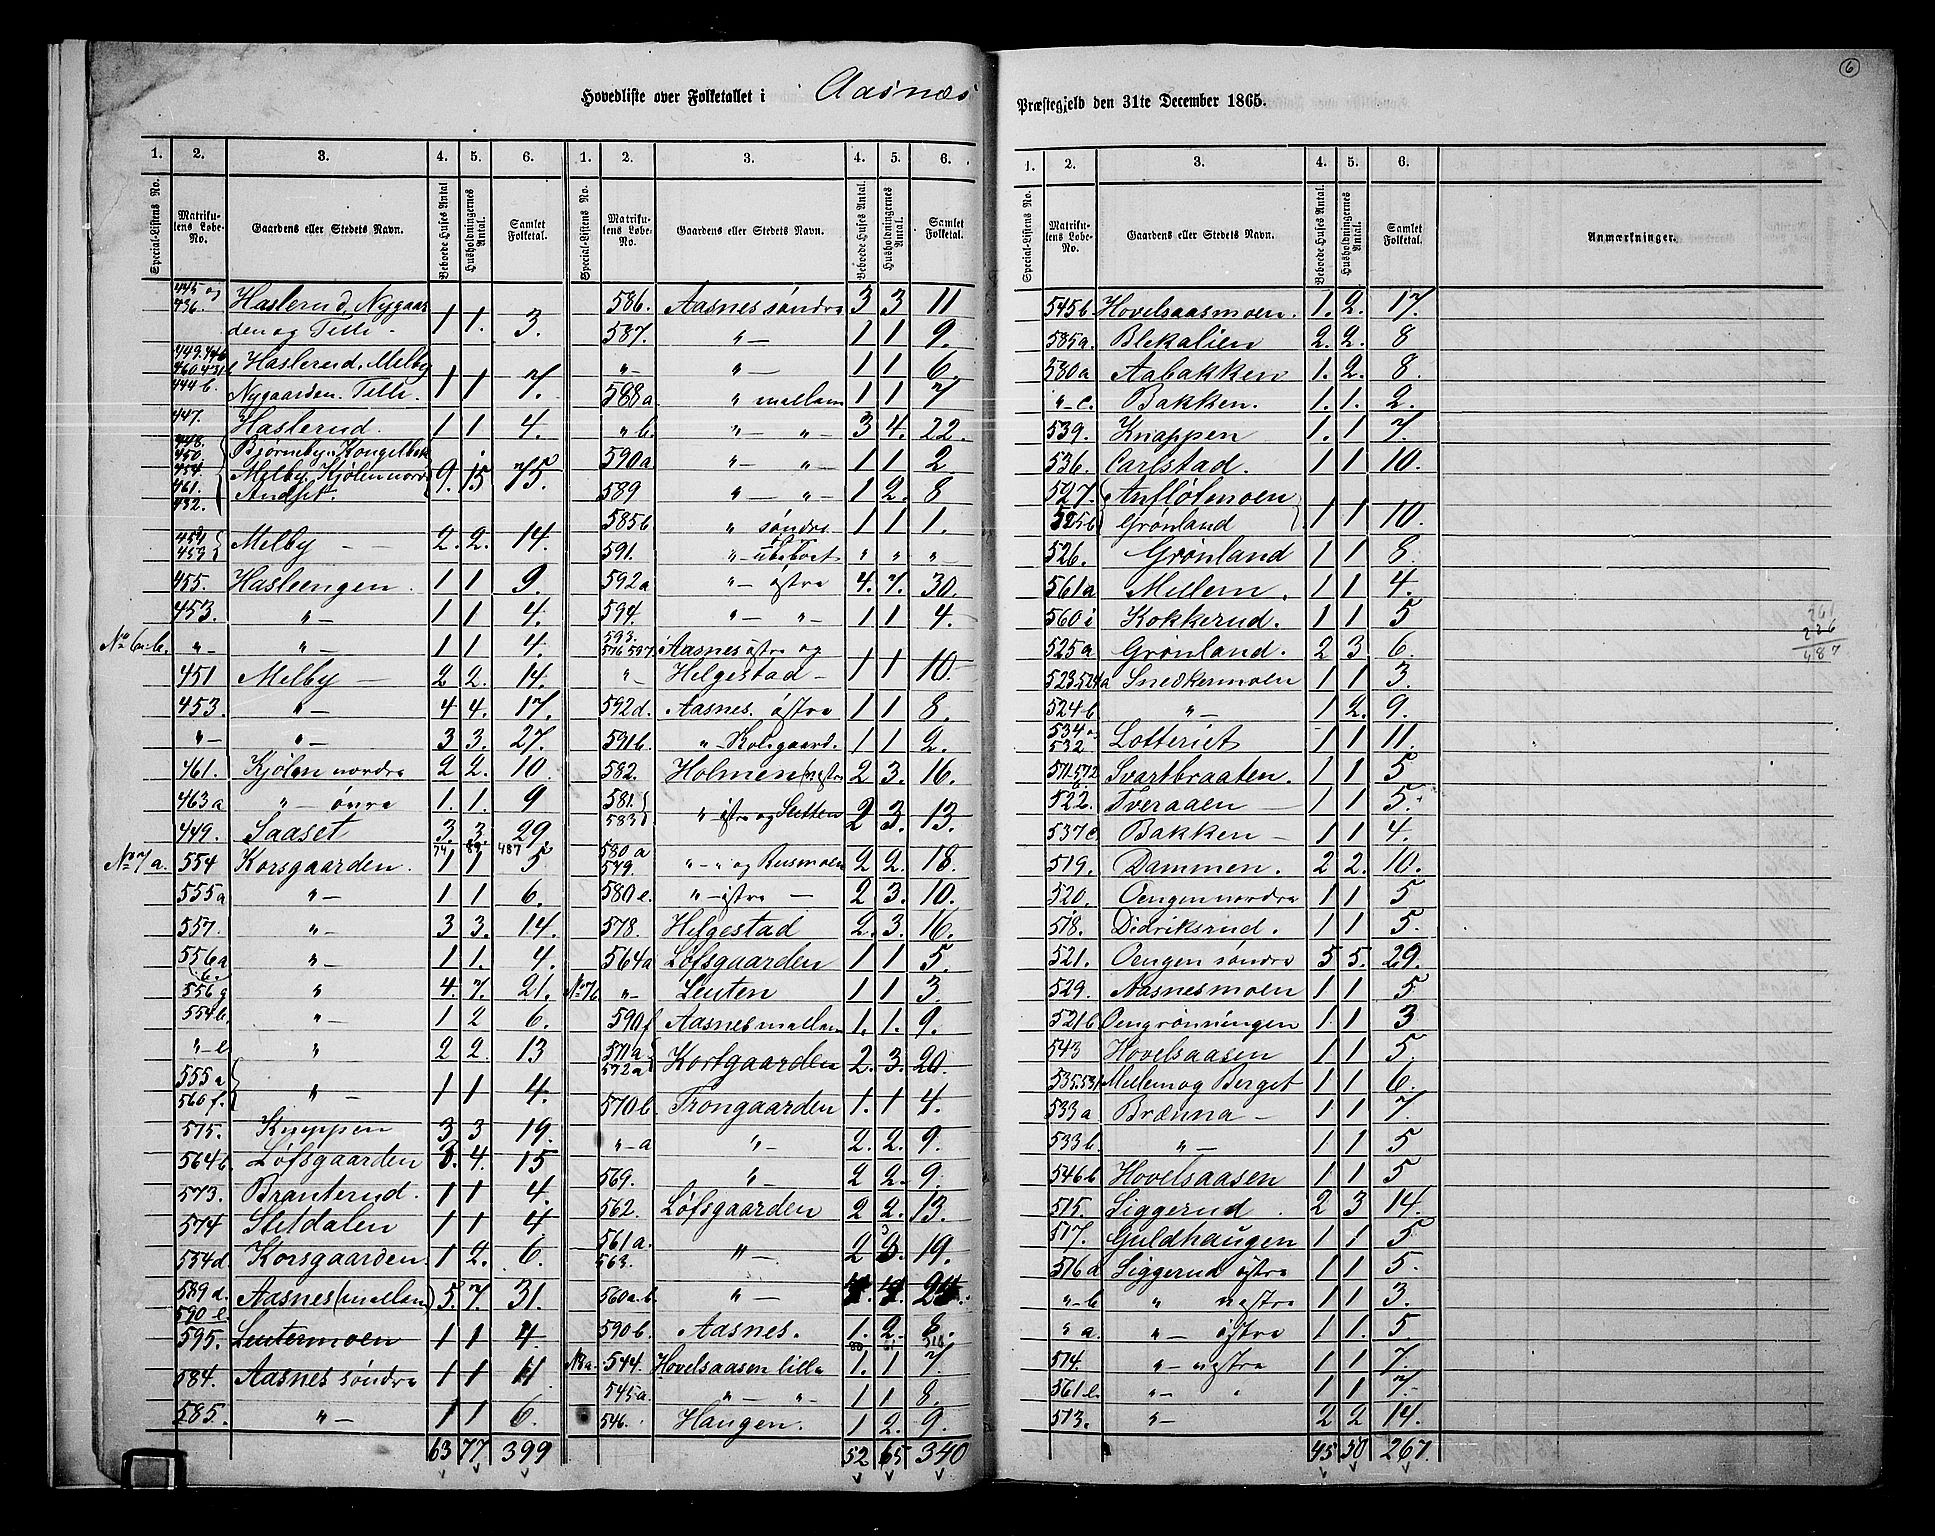 6
Hovedliste over Folketallet i Aasnæs Præstegjeld den 31te December 1865.
1. 2. 3. 4. 5. 6.
Special-Listens No. Matrikulens Løbe-No. Gaardens eller Stedets Navn. Beboede Huses Antal Husholdningernes Antal. Samlet Folketal.
445 og 436. Haslerud, Nygaarden og Tilli - 1 1. 3.
Haslerud, Melby
444 b. Nygaarden. Tilli. 1 1 7.
447. Haslerud. 1 1 4.
448. 450. Bjørneby. Kongelbek
454. 461. Melby, Kjølen nord 9. 15 75.
432. Andset.
Melby - - 2. 2. 14.
455. Hasleengen. 1 1 9.
453. " - 1 1 4.
" - " - 1 1 4.
451 Melby - 2 2. 14.
453. " - 4 4. 17.
" - " - 3 3. 27.
461. Kjølen nordre 2 2. 10.
463 a " - øvre 1. 1. 9
449. Saaset 3. 3. 29
74 487
No 7 a. 554 Korsgaarden. 1 1 5
555 a " - 1 1 6.
557. " - 3 3. 14.
556 a " - 1 1. 4.
556 g " 4. 7. 21.
554 b. " - 1 2 6.
" - e " 2 2. 13
555 a 560 f. " - 1 1 4.
575. Knappen 3 3 19.
564 b. Løfsgaarden 3. 4. 15
573. Branterud. 1 1 4.
574 Sletdalen 1 1 4
554 d. Korsgaarden. 1 2. 6.
589 d. 590 - e. Aasnes (mellem) 5. 7. 31.
595. Leutermoen 1 1 4.
584. Aasnes søndre 1 1 11
585. " - 1 1 6.
63 77 399
1. 2. 3. 4. 5. 6.
Special-Listens No. Matrikulens Løbe-No. Gaardens eller Stedets Navn. Beboede Huses Antal. Husholdningernes Antal. Samlet Folketal.
586. Aasnes søndre 3 3 11
587. " - 1 1 9.
" - " - 1 1 6.
588 a " mellem 1 1 7
" b. " - " 3 4. 22.
590 a " - " 1 1 2.
589 " - " 1 2. 8
585 b " søndre 1 1 1.
591. " - ubeboet " " "
592 a " - østre 4. 7. 30.
594. " - " - 1 1 4.
593. 576 597 Aasnes østre og
" - Helgestad - 1 1 10.
592 d. Aasnes. østre 1 1 8.
591 b. " - Kolsgaard. 1 1 2.
582. Holmen (vestre 2 3. 16.
581. 583 " østre og Sletten 2 3. 13.
580 a 579. " - " og Rusmoen 2 2. 18.
580 e. " - østre - 2 3. 10.
578. Helgestad 2. 3. 16.
564 a Løfsgaarden 1 1 5.
No 7 b " - Leuten 1 1 3.
590 f Aasnes mellem 1. 1. 9.
571 a 572 a Kortgaarden 2. 3. 20.
570 b. Trongaarden 1. 1 4.
" - a " - 2. 2. 9.
569. " - 2 2. 9.
562. Løfsgaarden 2 2. 13.
561 a. 563. " - 2 3. 19.
560 a. b. " -
590 b. Aasnes. 1. 2. 8.
No 8 a. 544. Hovelsaasen lille 1. 1 7.
545 a. " - " - 1 1 8.
546. Haugen. 1 2. 9.
52 65 340
1. 2. 3. 4. 5. 6.
Special-Listens No. Matrikulens Løbe-No. Gaardens eller Stedets Navn. Beboede Huses Antal. Husholdningernes Antal. Samlet Folketal. Anmærkninger.
545 b Hovelsaasmoen. 1. 2. 17.
585 a. Blekalien 2. 2. 8
530 a Aabakken 1. 2. 8.
" - c. Bakken. 1. 1. 2.
539. Knappen 1. 1 7.
536. Carlstad. 1 1 10.
527. Anfløtmoen
525 b Grønland 1 1 10.
526. Grønland 1 1 8.
561 a Mellem. 1 1 4.
560 i Kokkerud. 1 1 5
525 a Grønland. 2 3 6.
523. 524 a Snedkermoen 1 1 3.
524 b " - 1 2. 9.
534 a 532 Lotteriet 1 1 11.
571. 572 Svartbraaten. 1 1 5
522. Tveraaen - 1 1 5.
537 c. Bakken - 1 1 4.
519. Dammen. 2 2. 10.
520. Oengen nordre 1 1 5
518. Didriksrud. 1 1 5.
521. Oengen søndre 5 5. 29.
529. Nasnesmoen 1 1 5
521 b Oengrønningen 1. 1 3
543 Hovelsaasen 1 1 5.
535. 531 Mellem og Berget 1 1 6.
533 a Brænna - 1 1 7
533 b. " - 1 1 5
546 b Hovelsaasen 1 1 5
515. Siggerud. 2 3 14.
517. Guldhaugen 1 1 5
516 a Siggerud østre 1 1 5.
" - b " vestre 1 1 3.
" a. " - østre 1 1. 5.
514. " - vestre 1 1 7.
561 e. " - " 1 1 7.
513. " - 2 2 14.
45 50 267.
261
226
487